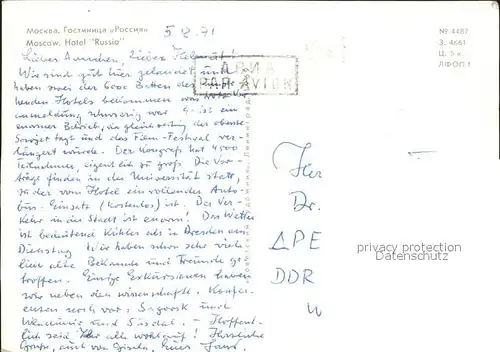 Москва. Гостиница «Россия»
Moscow. Hotel "Russia"
5.8.71
№ 4487
З. 4661
Ц. 5 к.
ЛФОП 1
АВИА
PAR AVION
Lieber Helmut!
Wir sind gut hier gelandet und
haben zwei der 6000 Betten des
henden Hotels bekommen was
anmeldung schwierig war. Es ist ein
enormer Betrieb, da gleichzeitig der oberste
Sowjet tagt und das Film-Festival ver-
längert wurde. Der Kongreß hat 4500
Teilnehmer, eigentlich zu groß. Die Vor-
träge finden in der Universität statt,
zu der vom Hotel ein rollender Auto-
bus-Einsatz (kostenlos) ist. Der Ver-
kehr in der Stadt ist enorm! Das Wetter
ist bedeutend kühler als in Dresden am
Dienstag. Wir haben schon sehr viele
liebe alte Bekannte und Freunde ge-
troffen. Einige Exkursionen haben
wir neben den wissenschaftl. Konfe-
renzen noch vor: Sagorsk und
Wladimir und Susdal. - Hoffent-
lich seid Ihr alle wohlauf! Herzliche
Grüße, auch von Gisela, Euer
Herr
Dr.
DDR
privacy protection
Datenschutz